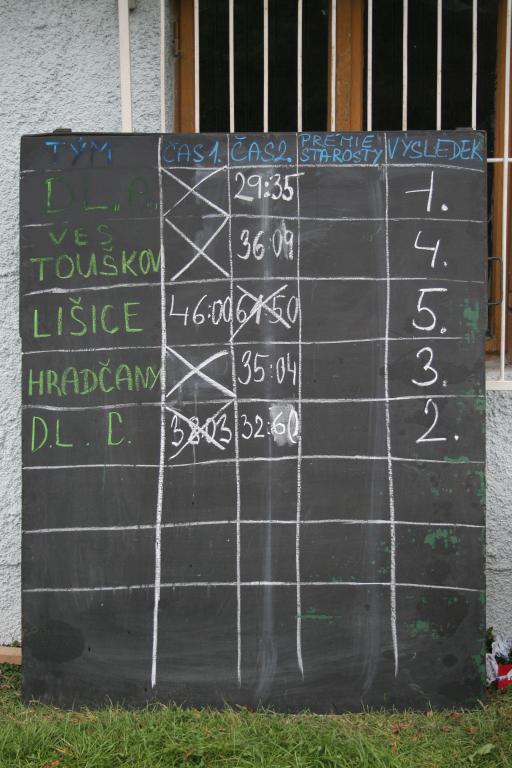 TÝM ČAS 1. ČAS 2. PRÉMIE STAROSTY VÝSLEDEK
D.L. A. 29:35 1.
VES TOUŠKOV 36:09 4.
LIŠICE 46:00 61:50 5.
HRADČANY 35:04 3.
D.L. 38:03 32:60 2.